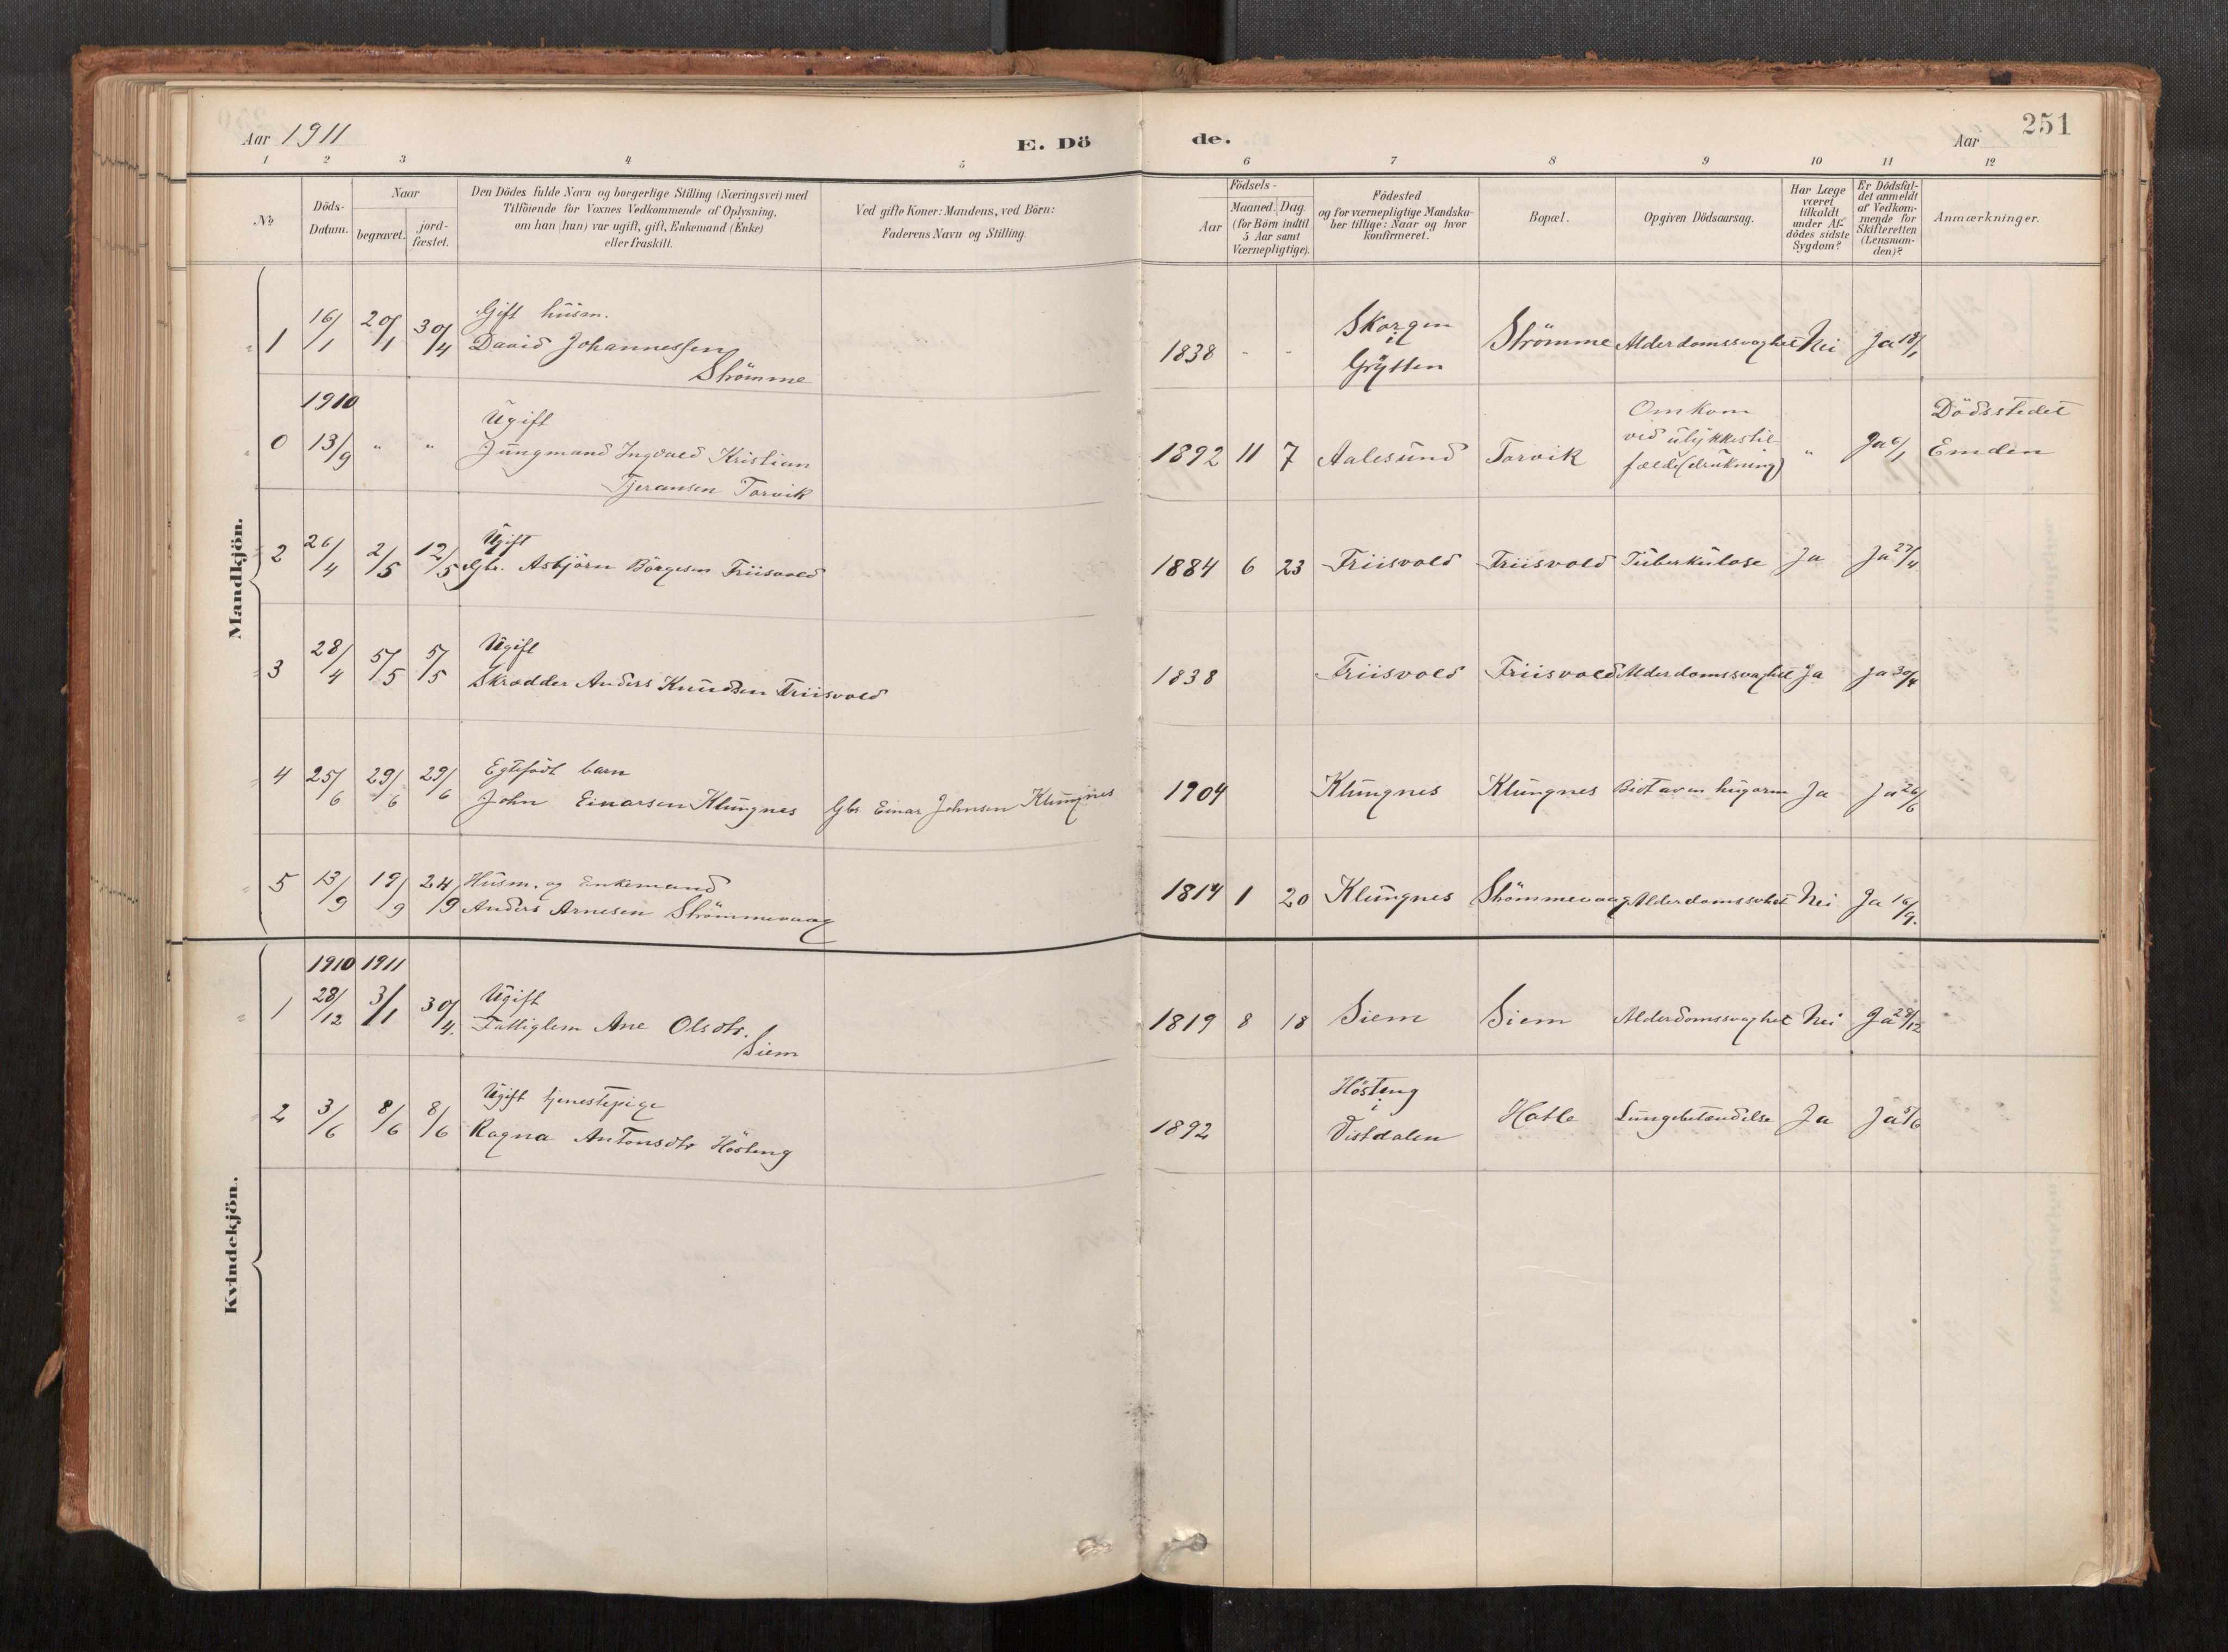 Aar 1911
E. Dö
de.
Aar
251
1 2 3 4 5 6 7 8 9 10 11 12
No
Döds-Datum.
Naar
begravet.
jord-fæstet.
Den Dödes fulde Navn og borgerlige Stilling (Næringsvei) med
Tilföiende for Voxnes Vedkommende af Oplysning,
om han (hun) var ugift, gift, Enkemand (Enke)
eller fraskilt.
Ved gifte Koner: Mandens, ved Börn:
Faderens Navn og Stilling.
Födsels-
Aar
Maaned. Dag.
(for Börn indtil
5 Aar samt
Værnepligtige).
Födested
og for værnepligtige Mandska-
ber tillige: Naar og hvor
konfirmeret.
Bopæl.
Opgiven Dödsaarsag.
Har Læge
været
tilkaldt
under Af-
dödes sidste
Sygdom?
Er Dödsfal-
det anmeldt
af Vedkom-
mende for
Skifteretten
(Lensman-
den)?
Anmærkninger.
Mandkjön.
1 16/1 20/1 30/4 Gift husm.
David Johannessen
Strömme
1838 - - Skorgen
i
Grytten
Strömme Alderdomssvaghet Nei Ja 18/1
1910
0 13/9 " " Ugift
Jungmand Ingvald Kristian
Tjeransen Torvik
1892 11 7 Aalesund Torvik
Omkom
ved ulykkestil-
fælde (drukning)
" Ja 6/1
Dödsstedet
Emden
2 26/4 2/5 12/5 Ugift
Gbr. Asbjörn Börgesen Friisvold
1884 6 23 Friisvold Friisvold Tuberkulose Ja Ja 27/4
3 28/4 5/5 5/5 Ugift
Skrædder Anders Knudsen Friisvold
1838 Friisvold Friisvold Alderdomssvaghet Ja Ja 30/4
4 25/6 29/6 29/6 Egtefödt barn
John Einarsen Klungnes Gbr. Einar Johnsen Klungnes
1904 Klungnes Klungnes Bidt av en hugorm Ja Ja 26/6
5 13/9 19/9 24/9 Husm. og Enkemand
Anders Arnesen Strömmevaag
1814 1 20 Klungnes Strömmevaag Alderdomssvhet Nei Ja 16/9.
Kvindekjön.
1910 1911
1 28/12 3/1 30/4. Ugift
Fattiglem Ane Olsdtr.
Siem
1819 8 18 Siem Siem Alderdomssvaghet Nei Ja 28/12
2 3/6 8/6 8/6 Ugift tjenestepige
Ragna Antonsdtr Hösteng
1892 Hösteng
i
Vistdalen
Hatle Lungebetændelse Ja Ja 5/6